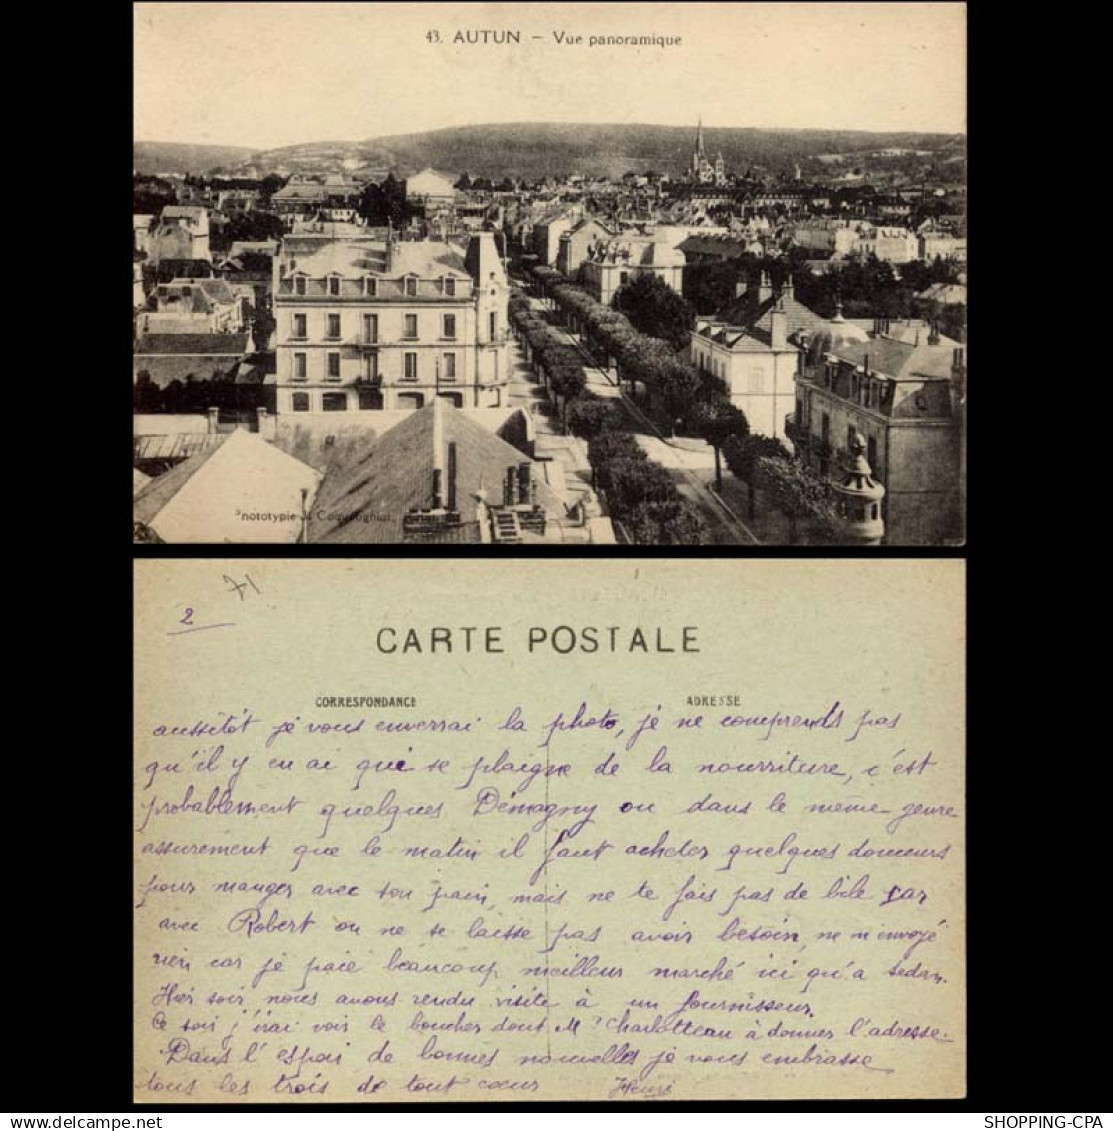 43. AUTUN - Vue panoramique
71
2
CARTE POSTALE
CORRESPONDANCE
ADRESSE
aussitôt je vous enverrai la photo, je ne comprends pas
qu'il y en ai qui se plaigne de la nourriture, c'est
probablement quelques Démagny ou dans le même genre
assurement que le matin il faut acheter quelques douceurs
pour manger avec son pain, mais ne te fais pas de bile car
avec Robert on ne se laisse pas avoir besoin, ne m'envoyé
rien car je paie beaucoup meilleur marché ici qu'a sedan.
Hier soir nous avons rendu visite à un fournisseur,
Ce soir j'irai voir le boucher dont Mr Charlotteau à donner l'adresse.
Dans l'espoir de bonnes nouvelles je vous embrasse
tous les trois de tout cœur Henri
SHOPPING-CPA